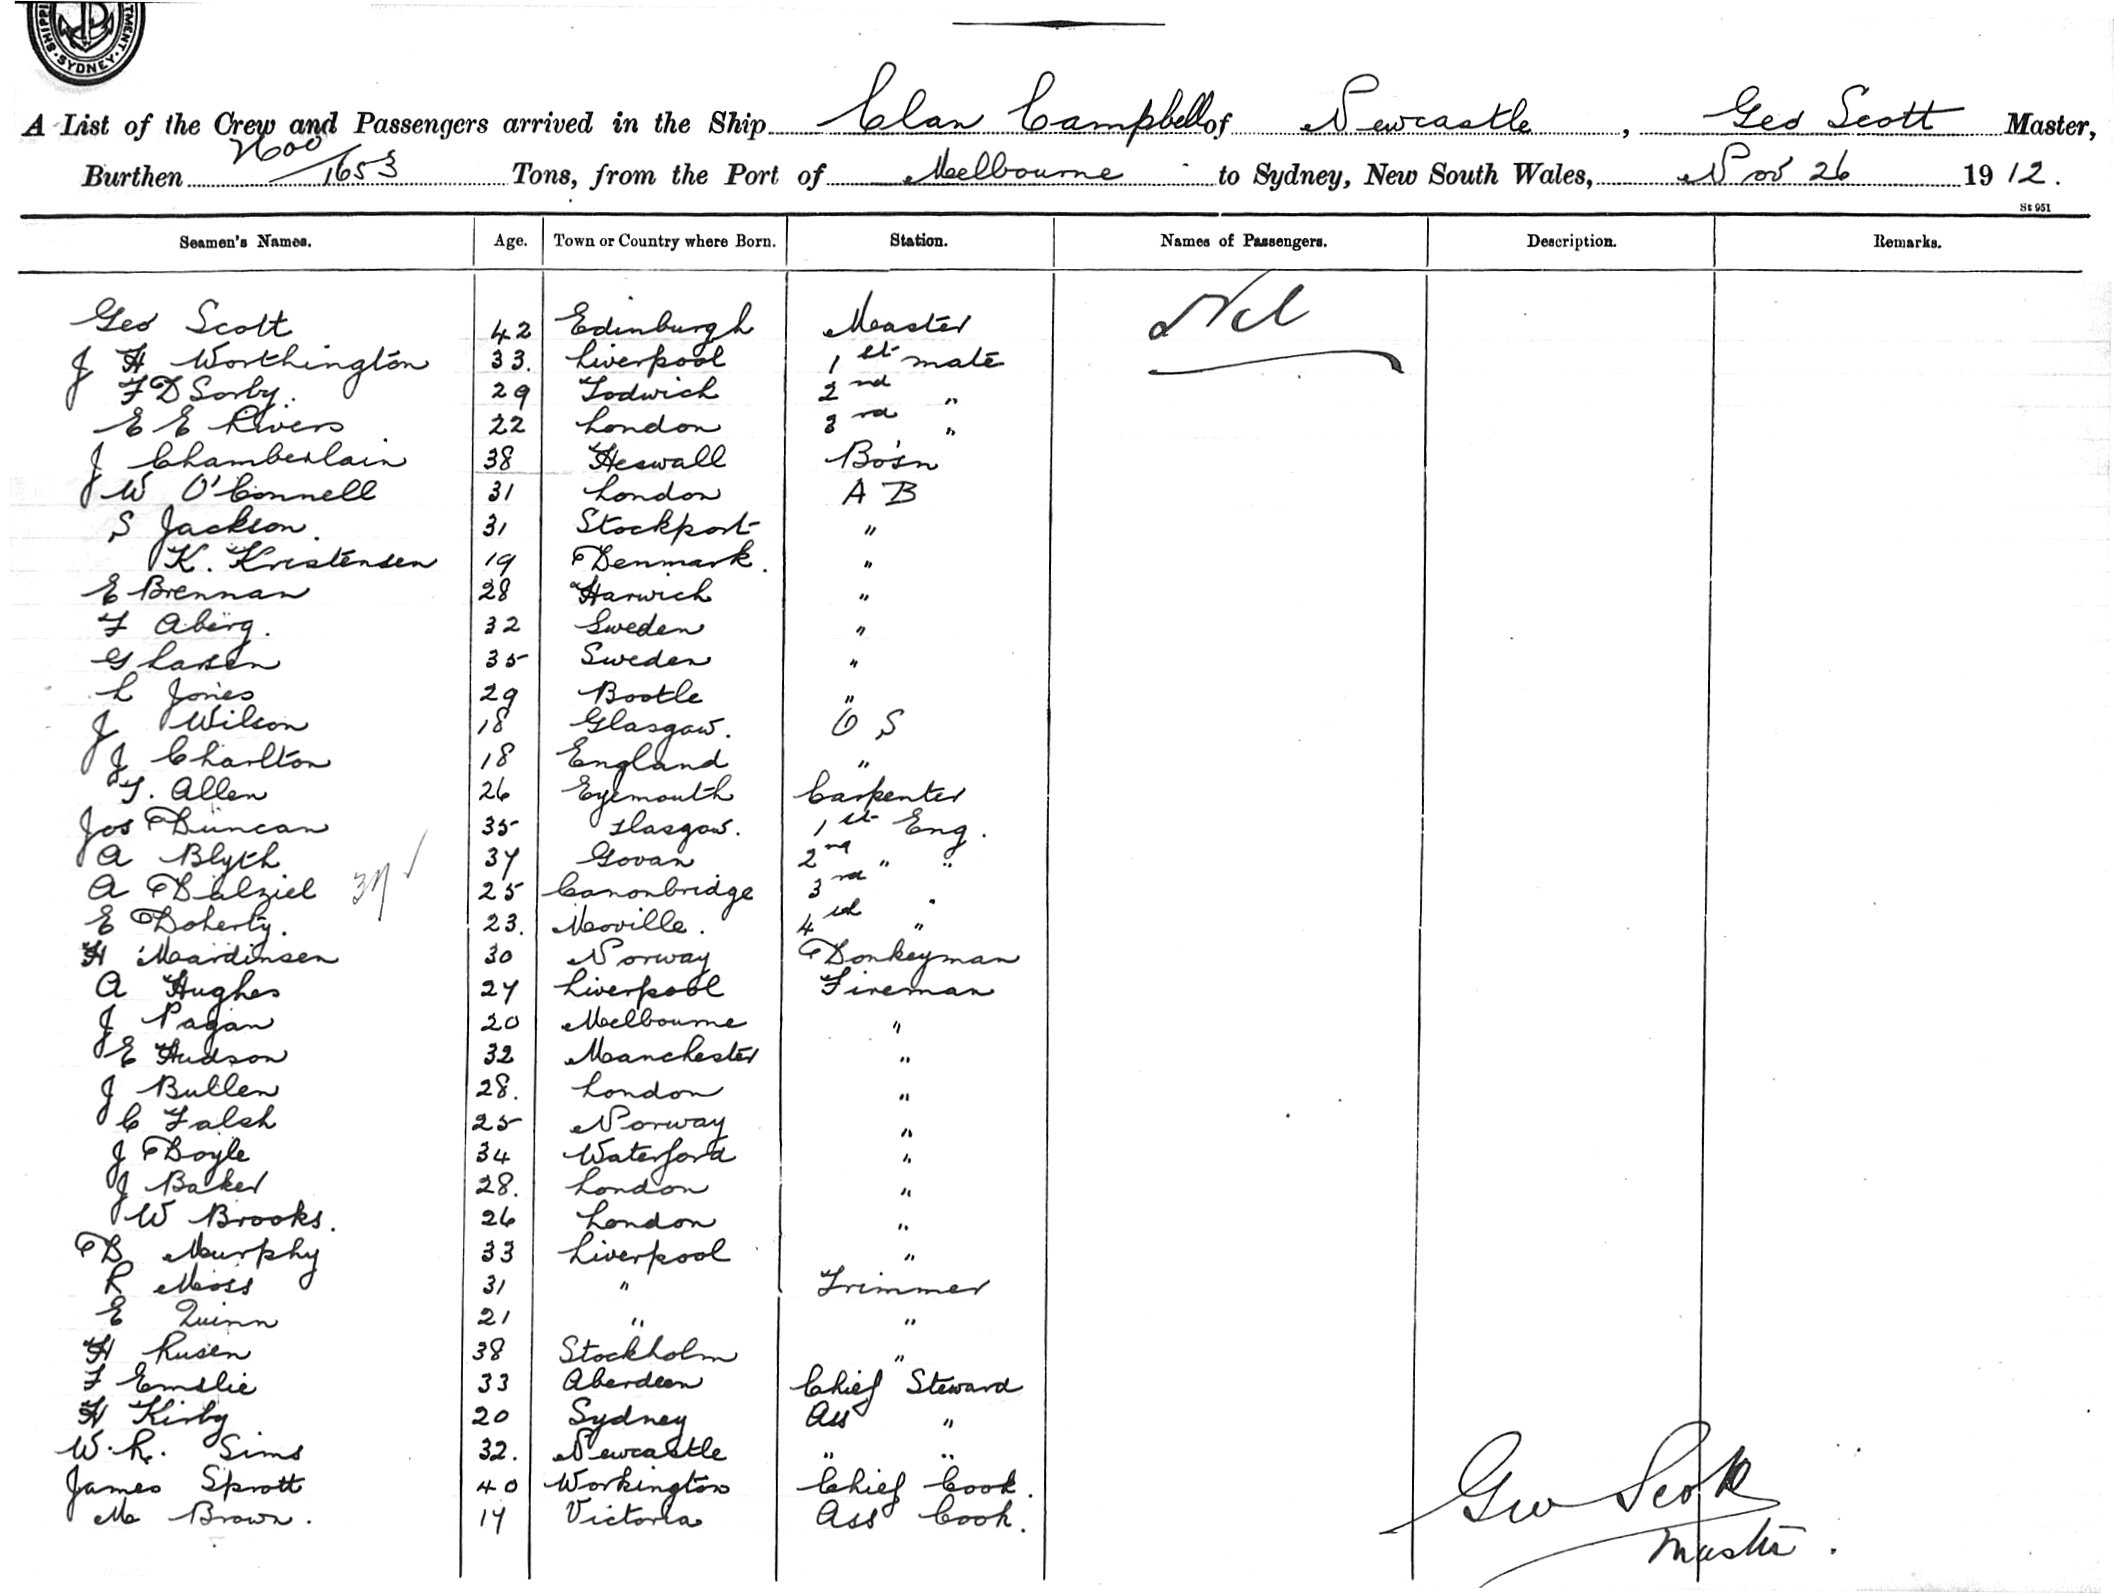 SHIPPI TMENT. SYDNEY
A List of the Crew and Passengers arrived in the Ship Clan Campbell of Newcastle, Geo Scott Master,
2600
Burthen 1653 Tons, from the Port of Melbourne to Sydney, New South Wales, Nov 26 1912.
St 951
Seamen's Names. Age. Town or Country where Born. Station. Names of Passengers. Description. Remarks.
Geo Scott 42 Edinburgh Master Nil
J H Worthington 33. Liverpool 1st mate
F D Sorby. 29 Todwich 2nd "
E E Rivers 22 London 3rd "
J Chamberlain 38 Heswall Bo'sn
W O'Connell 31 London A B
S Jackson. 31 Stockport "
K. Kristensen 19 Denmark. "
E Brennan 28 Harwich "
F Aberg. 32 Sweden "
G Larsen 35 Sweden "
L Jones 29 Bootle "
J Wilson 18 Glasgow. O S
J Charlton 18 England "
T. Allen 26 Eyemouth Carpenter
Jos Duncan 35 Glasgow. 1st Eng.
A Blyth 37 Govan 2nd " "
A Dalziel 37 25 Canonbridge 3rd "
E Doherty. 23. Moville. 4th "
H Mardinsen 30 Norway Donkeyman
A Hughes 27 Liverpool Fireman
J Pagan 20 Melbourne "
E Hudson 32 Manchester "
J Bullen 28. London "
C Falsh 25 Norway "
J Doyle 34 Waterford "
J Baker 28. London "
W Brooks. 26 London "
D Murphy 33 Liverpool "
R Moss 31 " Trimmer
E Quinn 21 " "
H Rusen 38 Stockholm "
F Emslie 33 Aberdeen Chief Steward
H Kirby 20 Sydney Ass "
W. R. Sims 32. Newcastle " "
James Sprott 40 Workington Chief Cook.
M Brown. 17 Victoria Ass Cook.
Geo Scott
Master.